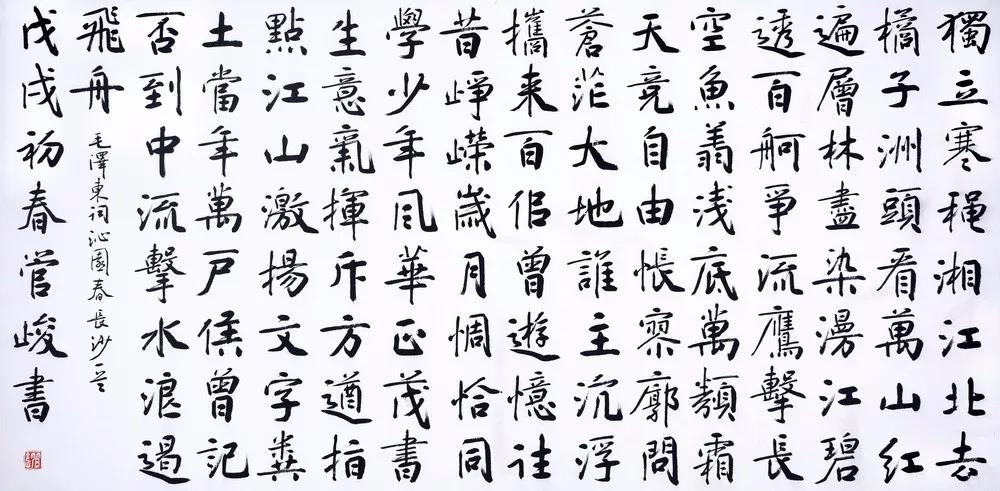 獨立寒穐湘江北去
橘子洲頭看萬山紅
遍層林盡染漫江碧
透百舸爭流鷹擊長
空魚翔淺底萬類霜
天競自由悵寥廓問
蒼茫大地誰主沉浮
攜来百侣曾遊憶往
昔崢嶸歲月惆恰同
學少年風華正茂書
生意氣揮斥方遒指
點江山激揚文字糞
土當年萬戶侯曾記
否到中流擊水浪遏
飛舟
毛澤東詞沁園春長沙一首
戊戌初春管峻書